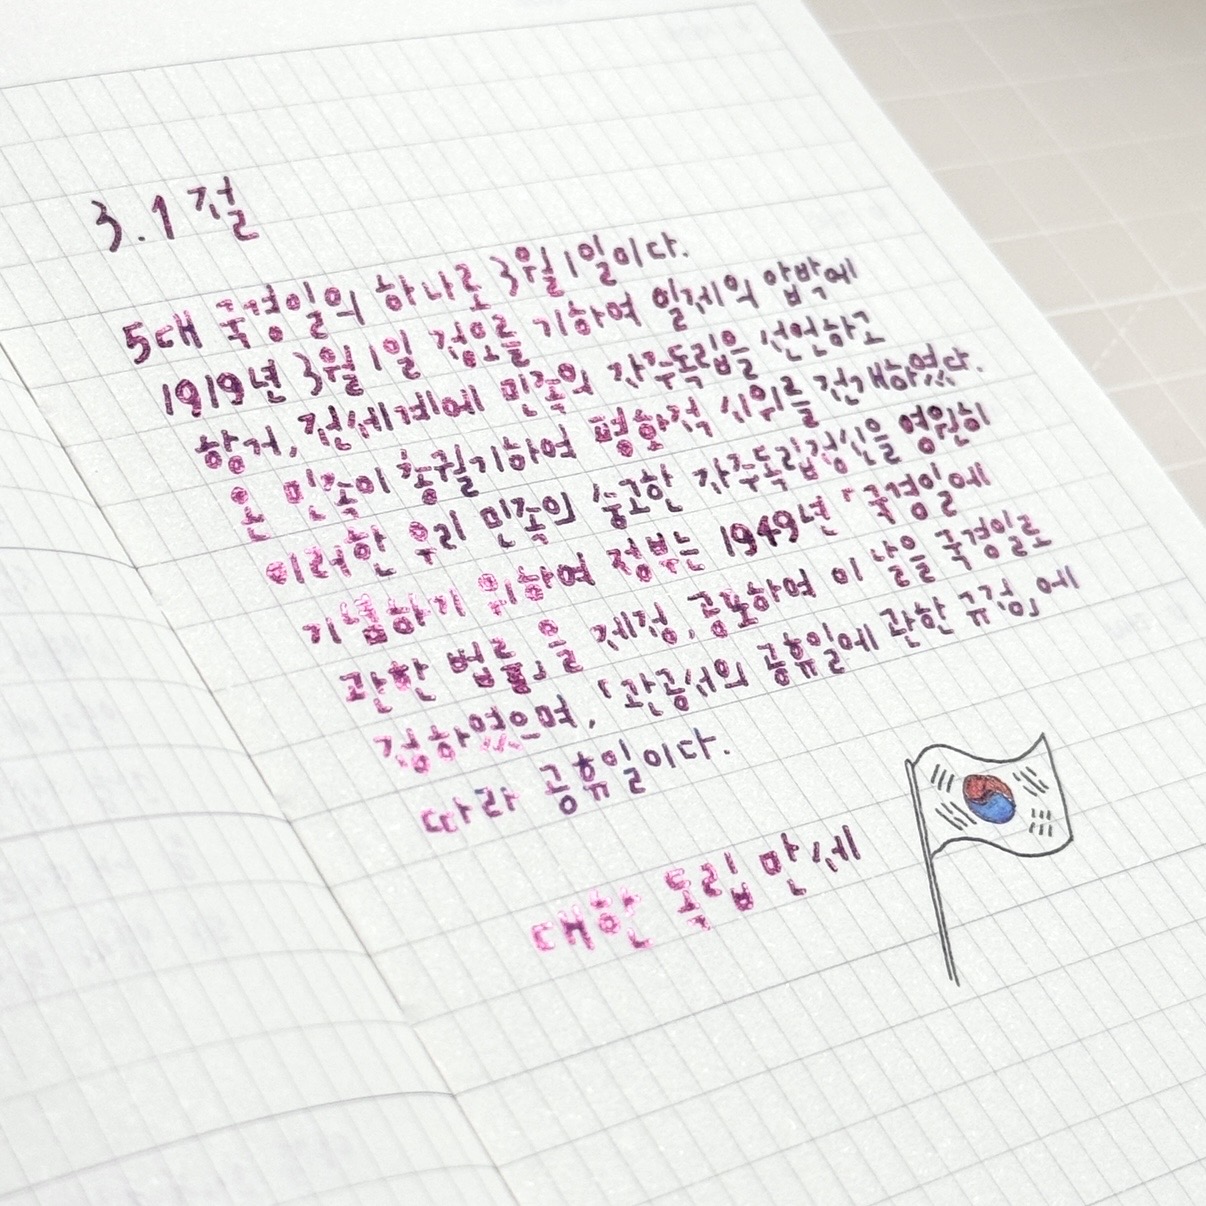 3.1절
5대 국경일의 하나로 3월 1일이다.
1919년 3월 1일 정오를 기하여 일제의 압박에
항거, 전세계에 민족의 자주독립을 선언하고
온 민족이 총궐기하여 평화적 시위를 전개하였다.
이러한 우리 민족의 숭고한 자주독립정신을 영원히
기념하기 위하여 정부는 1949년 「국경일에
관한 법률」을 제정, 공포하여 이 날을 국경일로
정하였으며, 「관공서의 공휴일에 관한 규정」에
따라 공휴일이다.
대한 독립 만세